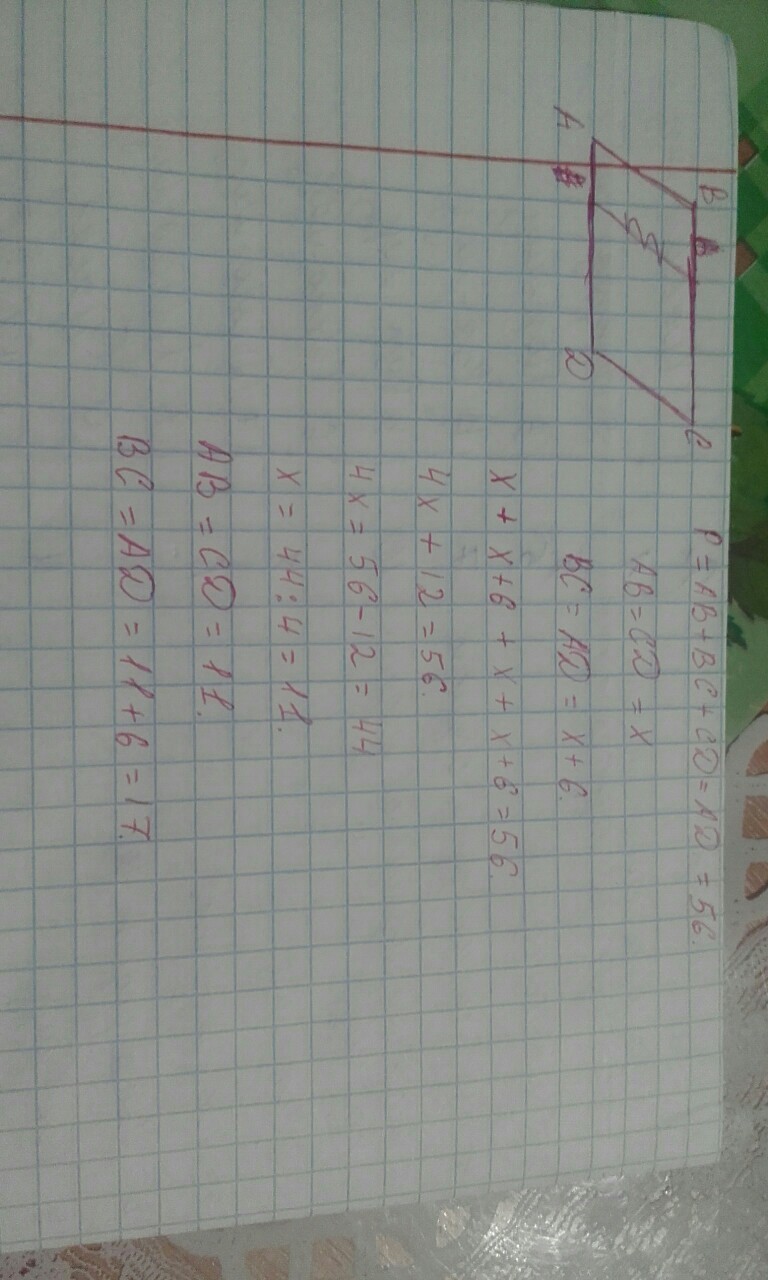 B C
A D
P = AB + BC + CD = AD = 56.
AB = CD = x
BC = AD = x + 6.
x + x + 6 + x + x + 6 = 56.
4x + 12 = 56.
4x = 56 - 12 = 44
x = 44 : 4 = 11.
AB = CD = 11.
BC = AD = 11 + 6 = 17.